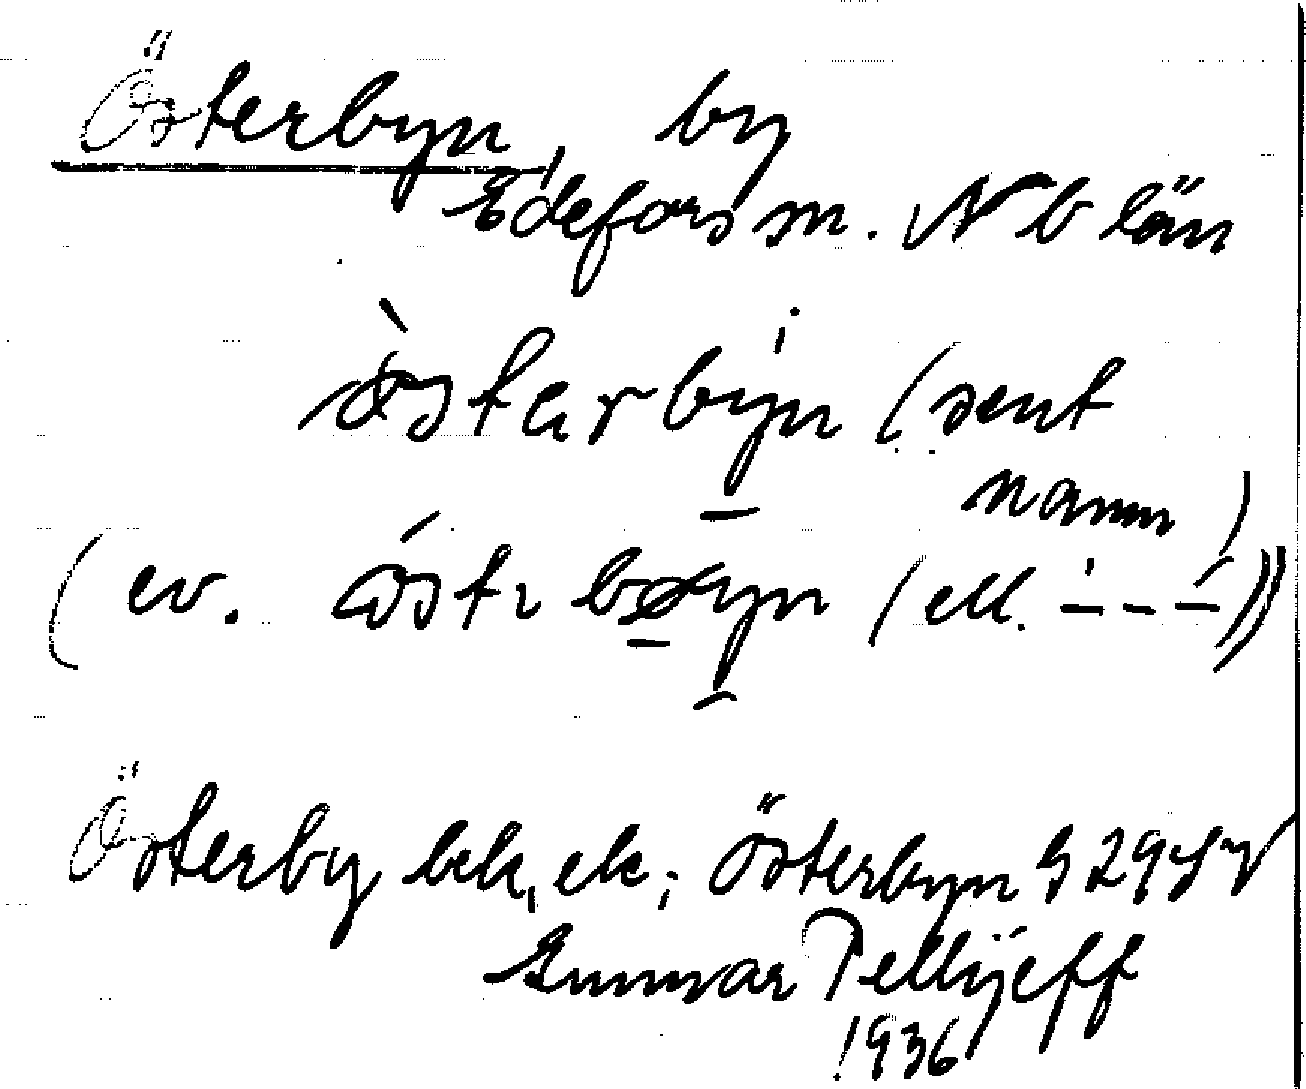 Österbyn, by
Edefors sn. Nb län
òstərbýn (sent
namn)
(ev. óstr bøyn (ell. - - -))
Österby bek, ek; Österbyn S 29
Gunnar Pellijeff
1936